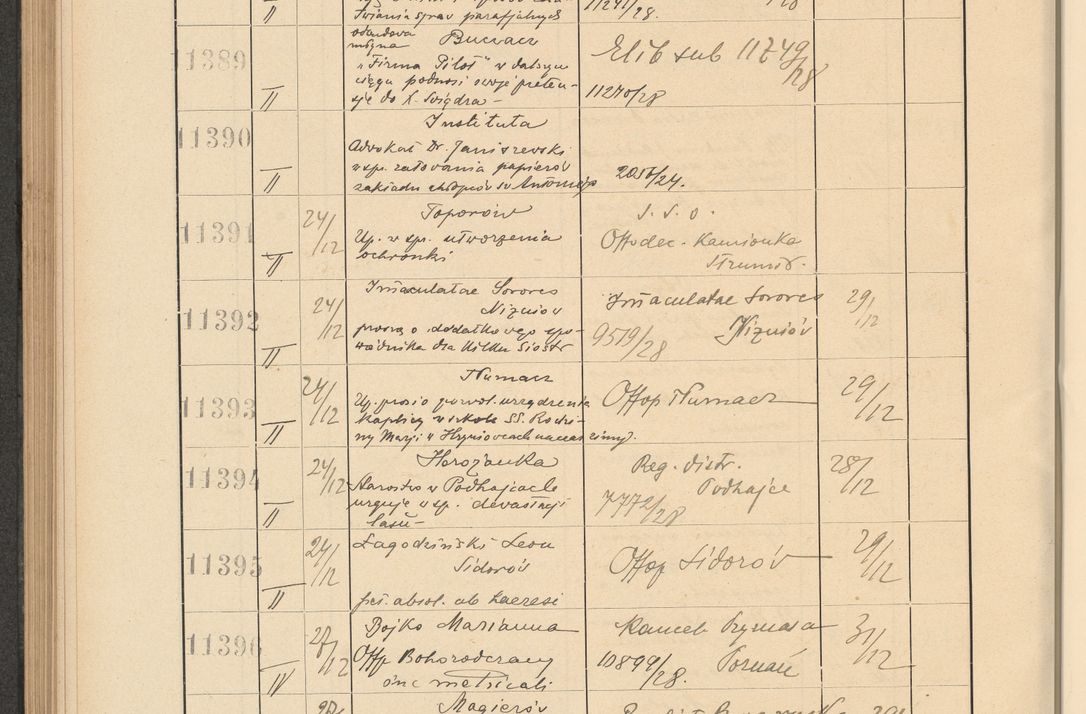 twiania spraw parafjalnych
II
11241/28.
11389
odmowa
Buczacz
"Firma Pilot" w dalszym
ciągu podnosi swoje preten-
sje do X. Świądra -
II
Elib sub 11249/28
11270/28
11390
Instituta
Adwokat Dr. Janiszewski
w sp. zatowania papierów
zakładu chłopców św Antoniego
II
2056/24.
11391
24/12
Toporów
Up. w sp. utworzenia
ochronki
II
S. S. O.
Offodec. Kamionka
Strumił.
11392
24/12
Immaculatae Sorores
Niżniów
proszą o dodatkowego spo-
wiednika dla kilku Sióstr
II
Immaculatae Sorores
9519/28 Niżniów
29/12
11393
24/12
Tłumacz
Up. prosi o pozwol. urządzenia
kaplicy w szkole SS. Rodzi-
ny Marji w Hryniowcach
II
Offop Tłumacz
29/12
11394
24/12
Horożanka
Starostwo w Podhajcach
urguje w sp. devastacji
lasu -
II
Reg. distr.
Podhajce
7772/28
28/12
11395
24/12
Łagodziński Leon
Sidorów
pet. absol. ab haeresi
II
Offop Sidorów
29/12
11396
27/12
Bojko Marianna
Offp Bohorodczany
onc metricali
IV
Kancel. Prymasa
10899/28. Poznań
31/12
Magierów